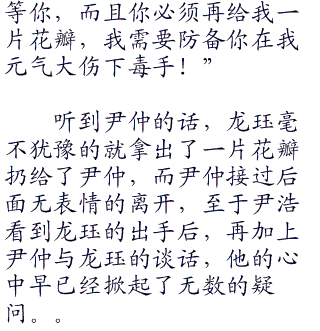 等你，而且你必须再给我一
片花瓣，我需要防备你在我
元气大伤下毒手！”
听到尹仲的话，龙珏毫
不犹豫的就拿出了一片花瓣
扔给了尹仲，而尹仲接过后
面无表情的离开，至于尹浩
看到龙珏的出手后，再加上
尹仲与龙珏的谈话，他的心
中早已经掀起了无数的疑
问。。